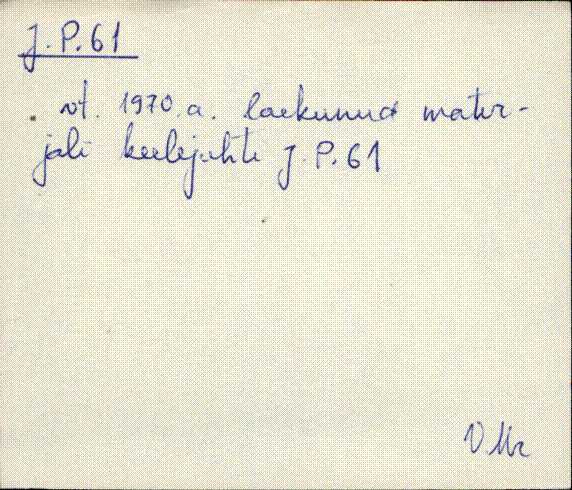 J.P.61
vt. 1970.a. laekunud mater-
jali keelejuhte J.P.61